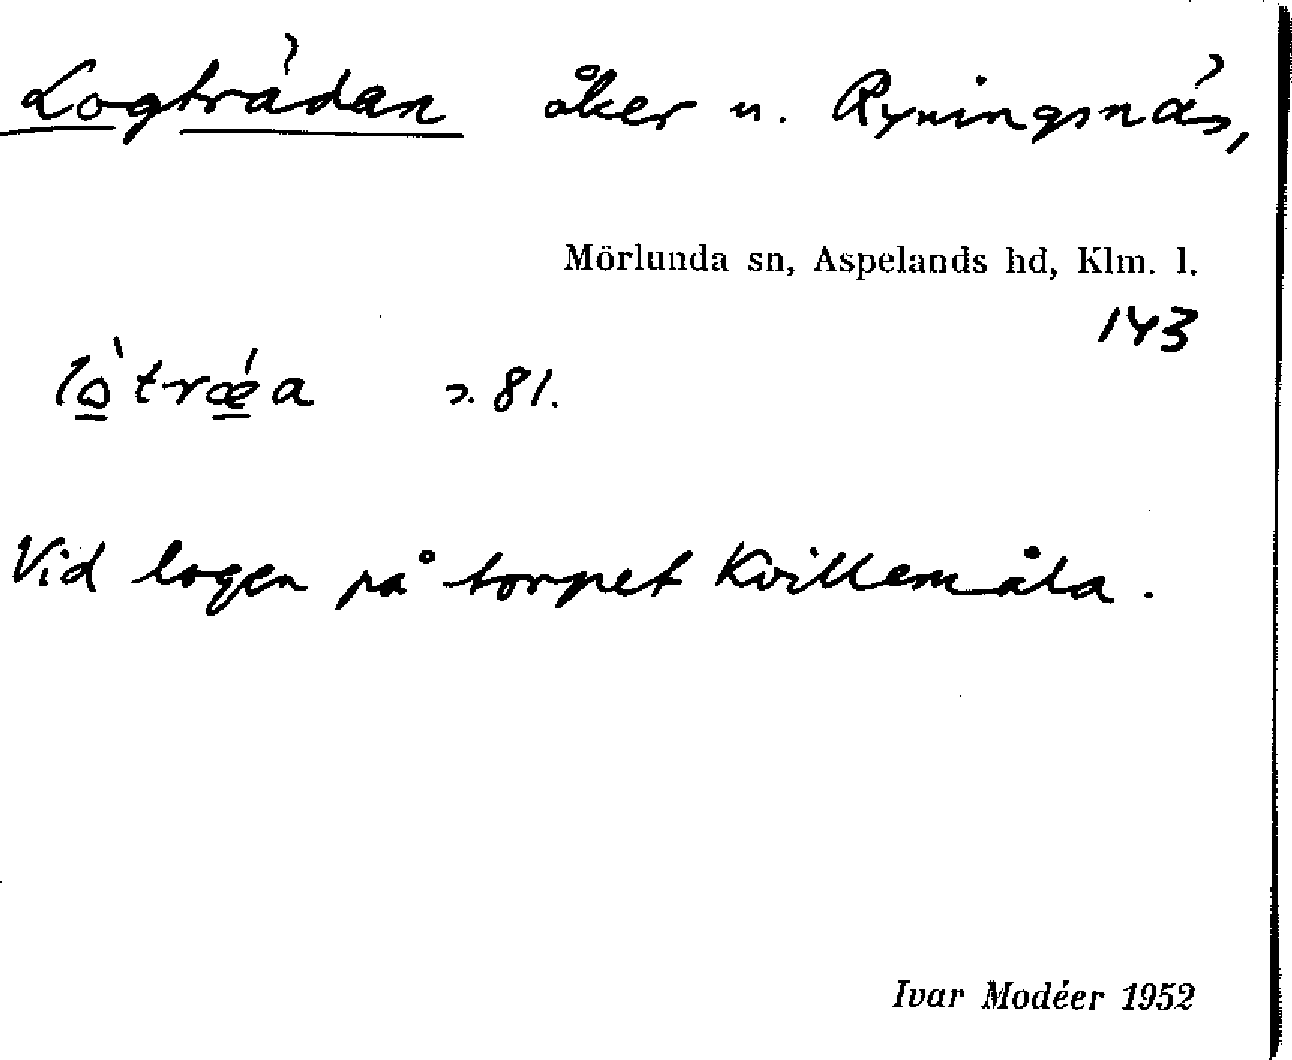 Logträdan åker u. Ryningsnäs,
Mörlunda sn, Aspelands hd, Klm. l.
143
lò̱trǽ̱a s. 81.
Vid logen på torpet Kvillemåla.
Ivar Modéer 1952